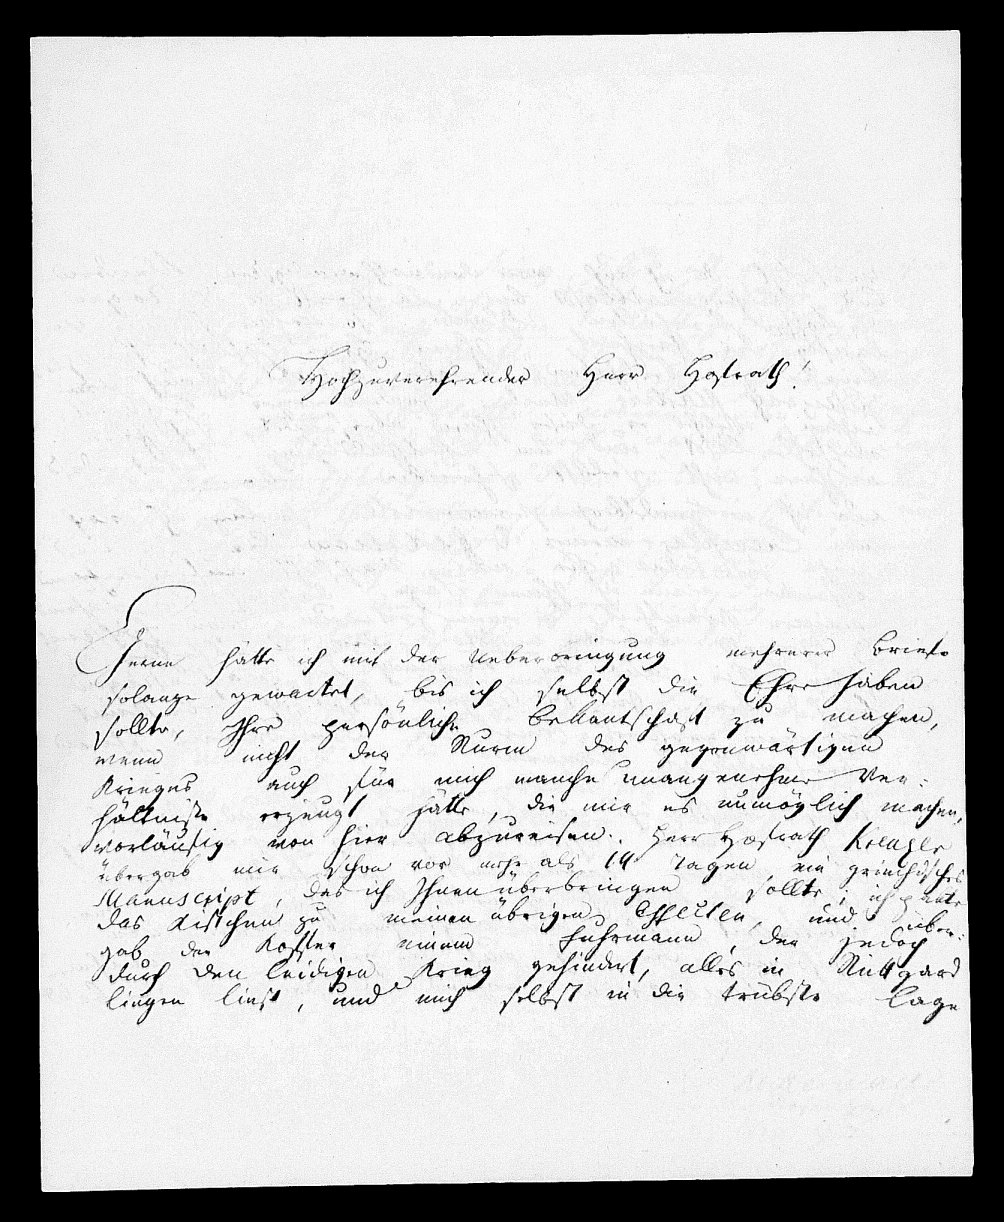 Hochzuverehrender Herr Hofrath!
Gerne hätte ich mit der Ueberbringung mehrerer Briefe
solange gewartet, bis ich selbst die Ehre haben
sollte, Ihre persönliche Bekantschaft zu machen,
wenn nicht der Sturm des gegenwärtigen
Krieges auch für mich manche unangenehme Ver-
hältniße erzeugt hätte, die mir es unmöglich machen,
vorläufig von hier abzureisen. Herr Hofrath
übergab mir schon vor mehr als 14 Tagen ein griechisches
Manuscript, das ich Ihnen überbringen sollte, ich pakte
das Kistchen zu meinen übrigen Effecten, und über-
gab den Koffer einem Fuhrmann, der jedoch
durch den leidigen Krieg gehindert, alles in
lingen ließ, und mich selbst in die trübste Lage